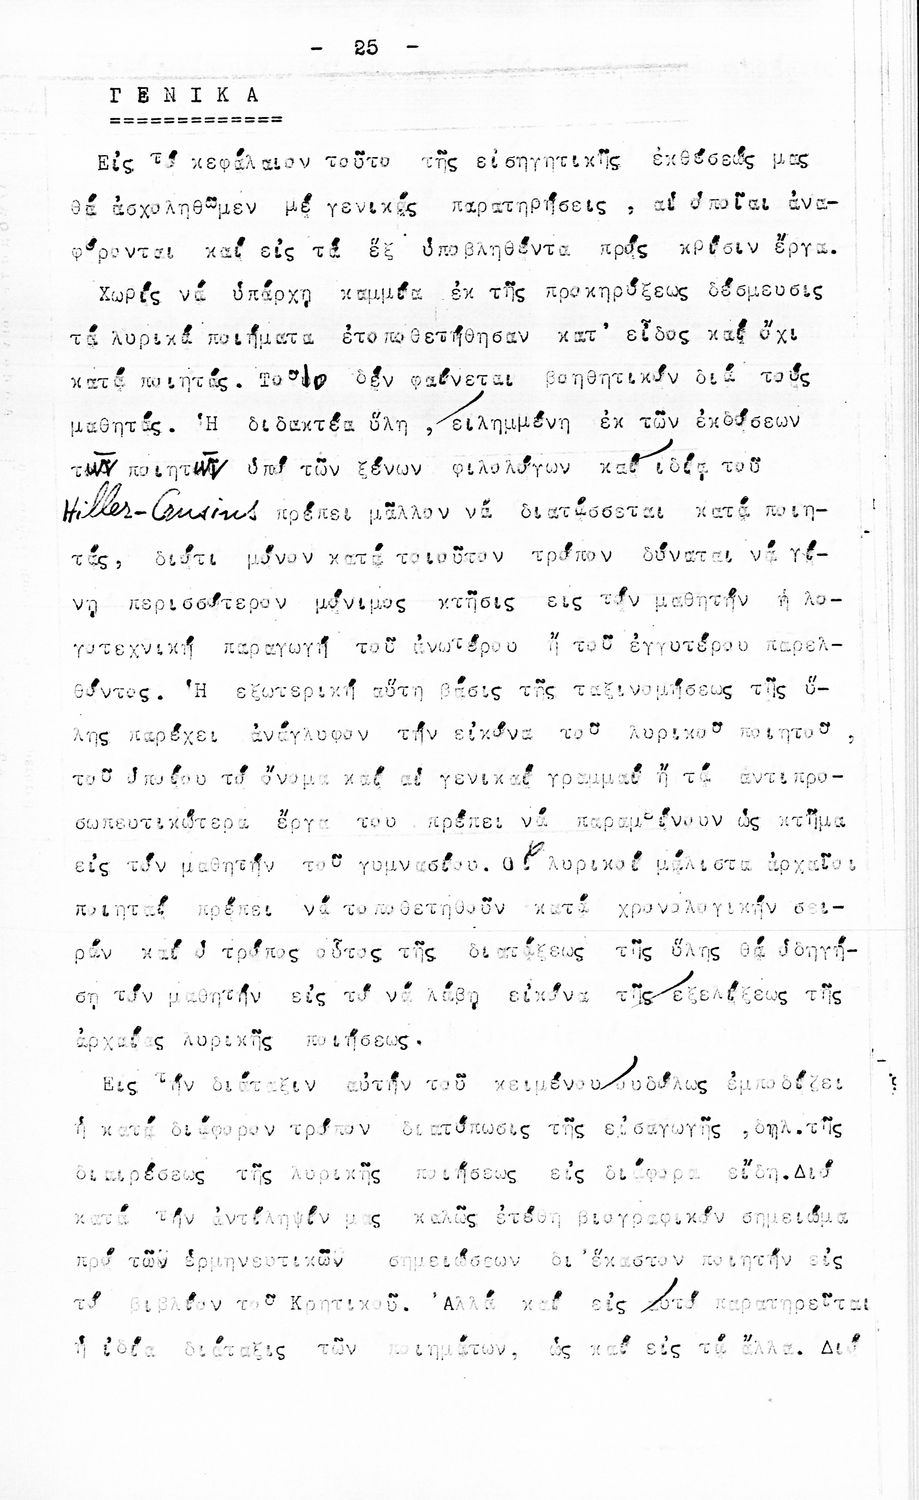 - 25 -
ΓΕΝΙΚΑ
=============
Εἰς τό κεφάλαιον τοῦτο τῆς εἰσηγητικῆς ἐκθέσεώς μας
θά ἀσχοληθῶμεν μέ γενικάς παρατηρήσεις , αἱ ὁποῖαι ἀνα-
φέρονται καί εἰς τά ἕξ ὑποβληθέντα πρός κρίσιν ἔργα.
Χωρίς νά ὑπάρχη καμμία ἐκ τῆς προκηρύξεως δέσμευσις
τά λυρικά ποιήματα ἐτοποθετήθησαν κατ' εἶδος καί ὄχι
κατά ποιητάς. Τοῦτο δέν φαίνεται βοηθητικόν διά τούς
μαθητάς. Ἡ διδακτέα ὕλη , ειλημμένη ἐκ τῶν ἐκδόσεων
τῶν ποιητῶν ὑπό τῶν ξένων φιλολόγων καί ιδίᾳ τοῦ
Hiller-Crusius πρέπει μᾶλλον νά διατάσσεται κατά ποιη-
τάς, διότι μόνον κατά τοιοῦτον τρόπον δύναται νά γί-
νῃ περισσότερον μόνιμος κτῆσις εις τόν μαθητήν ἡ λο-
γοτεχνική παραγωγή τοῦ ἀνωτέρου ἤ τοῦ ἐγγυτέρου παρελ-
θόντος. Ἡ εξωτερική αὕτη βάσις τῆς ταξινομήσεως τῆς ὕ-
λης παρέχει ἀνάγλυφον τήν εἰκόνα τοῦ λυρικοῦ ποιητοῦ ,
τοῦ ὁποίου τό ὄνομα καί αἱ γενικαί γραμμαί ἤ τά ἀντιπρο-
σωπευτικώτερα ἔργα του πρέπει νά παραμείνουν ὡς κτῆμα
εἰς τόν μαθητήν τοῦ γυμνασίου. Οἱ λυρικοί μάλιστα ἀρχαῖοι
ποιηταί πρέπει νά τοποθετηθοῦν κατά χρονολογικήν σει-
ράν καί ὁ τρόπος οὗτος τῆς διατάξεως τῆς ὕλης θά ὁδηγή-
ση τόν μαθητήν εἰς τό νά λάβῃ εἰκόνα τῆς εξελίξεως τῆς
ἀρχαίας λυρικῆς ποιήσεως.
Εις τήν διάταξιν αὐτήν τοῦ κειμένου ουδόλως ἐμποδίζει
ἡ κατά διάφορον τρόπον διατύπωσις τῆς εἰσαγωγῆς ,δηλ.τῆς
διαιρέσεως τῆς λυρικῆς ποιήσεως εἰς διάφορα εἴδη.Διό
κατά τήν ἀντίληψίν μας καλῶς ἐτέθη βιογραφικόν σημείωμα
πρό τῶν ἑρμηνευτικῶν σημειώσεων δι'ἕκαστον ποιητήν εἰς
τό βιβλίον τοῦ Κρητικοῦ. Ἀλλά καί εἰς αυτό παρατηρεῖται
ἡ ἰδία διάταξις τῶν ποιημάτων, ὡς καί εἰς τά ἄλλα. Διό